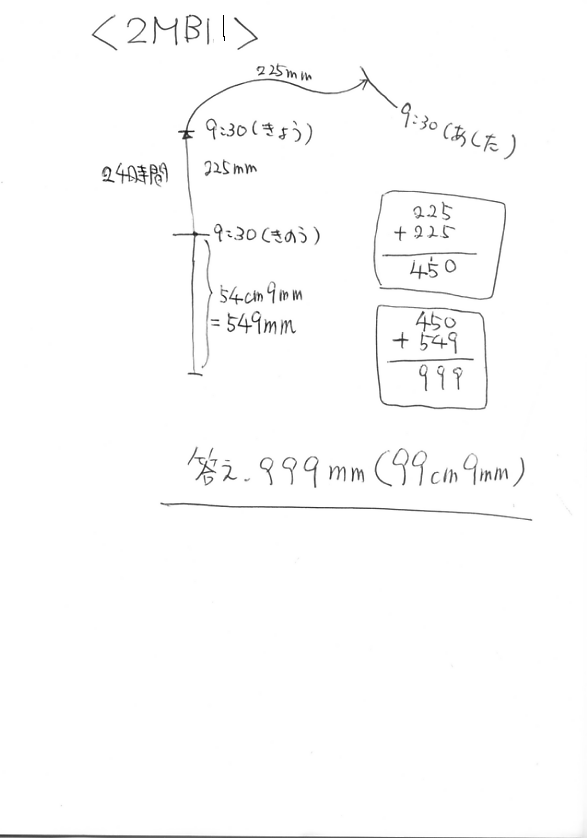 <2MB11>
225mm
9:30(あした)
9:30(きょう)
24時間
225mm
9:30(きのう)
54cm9mm
=549mm
225
+225
450
450
+549
999
答え.999mm(99cm9mm)